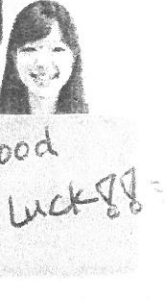 ood
Luck